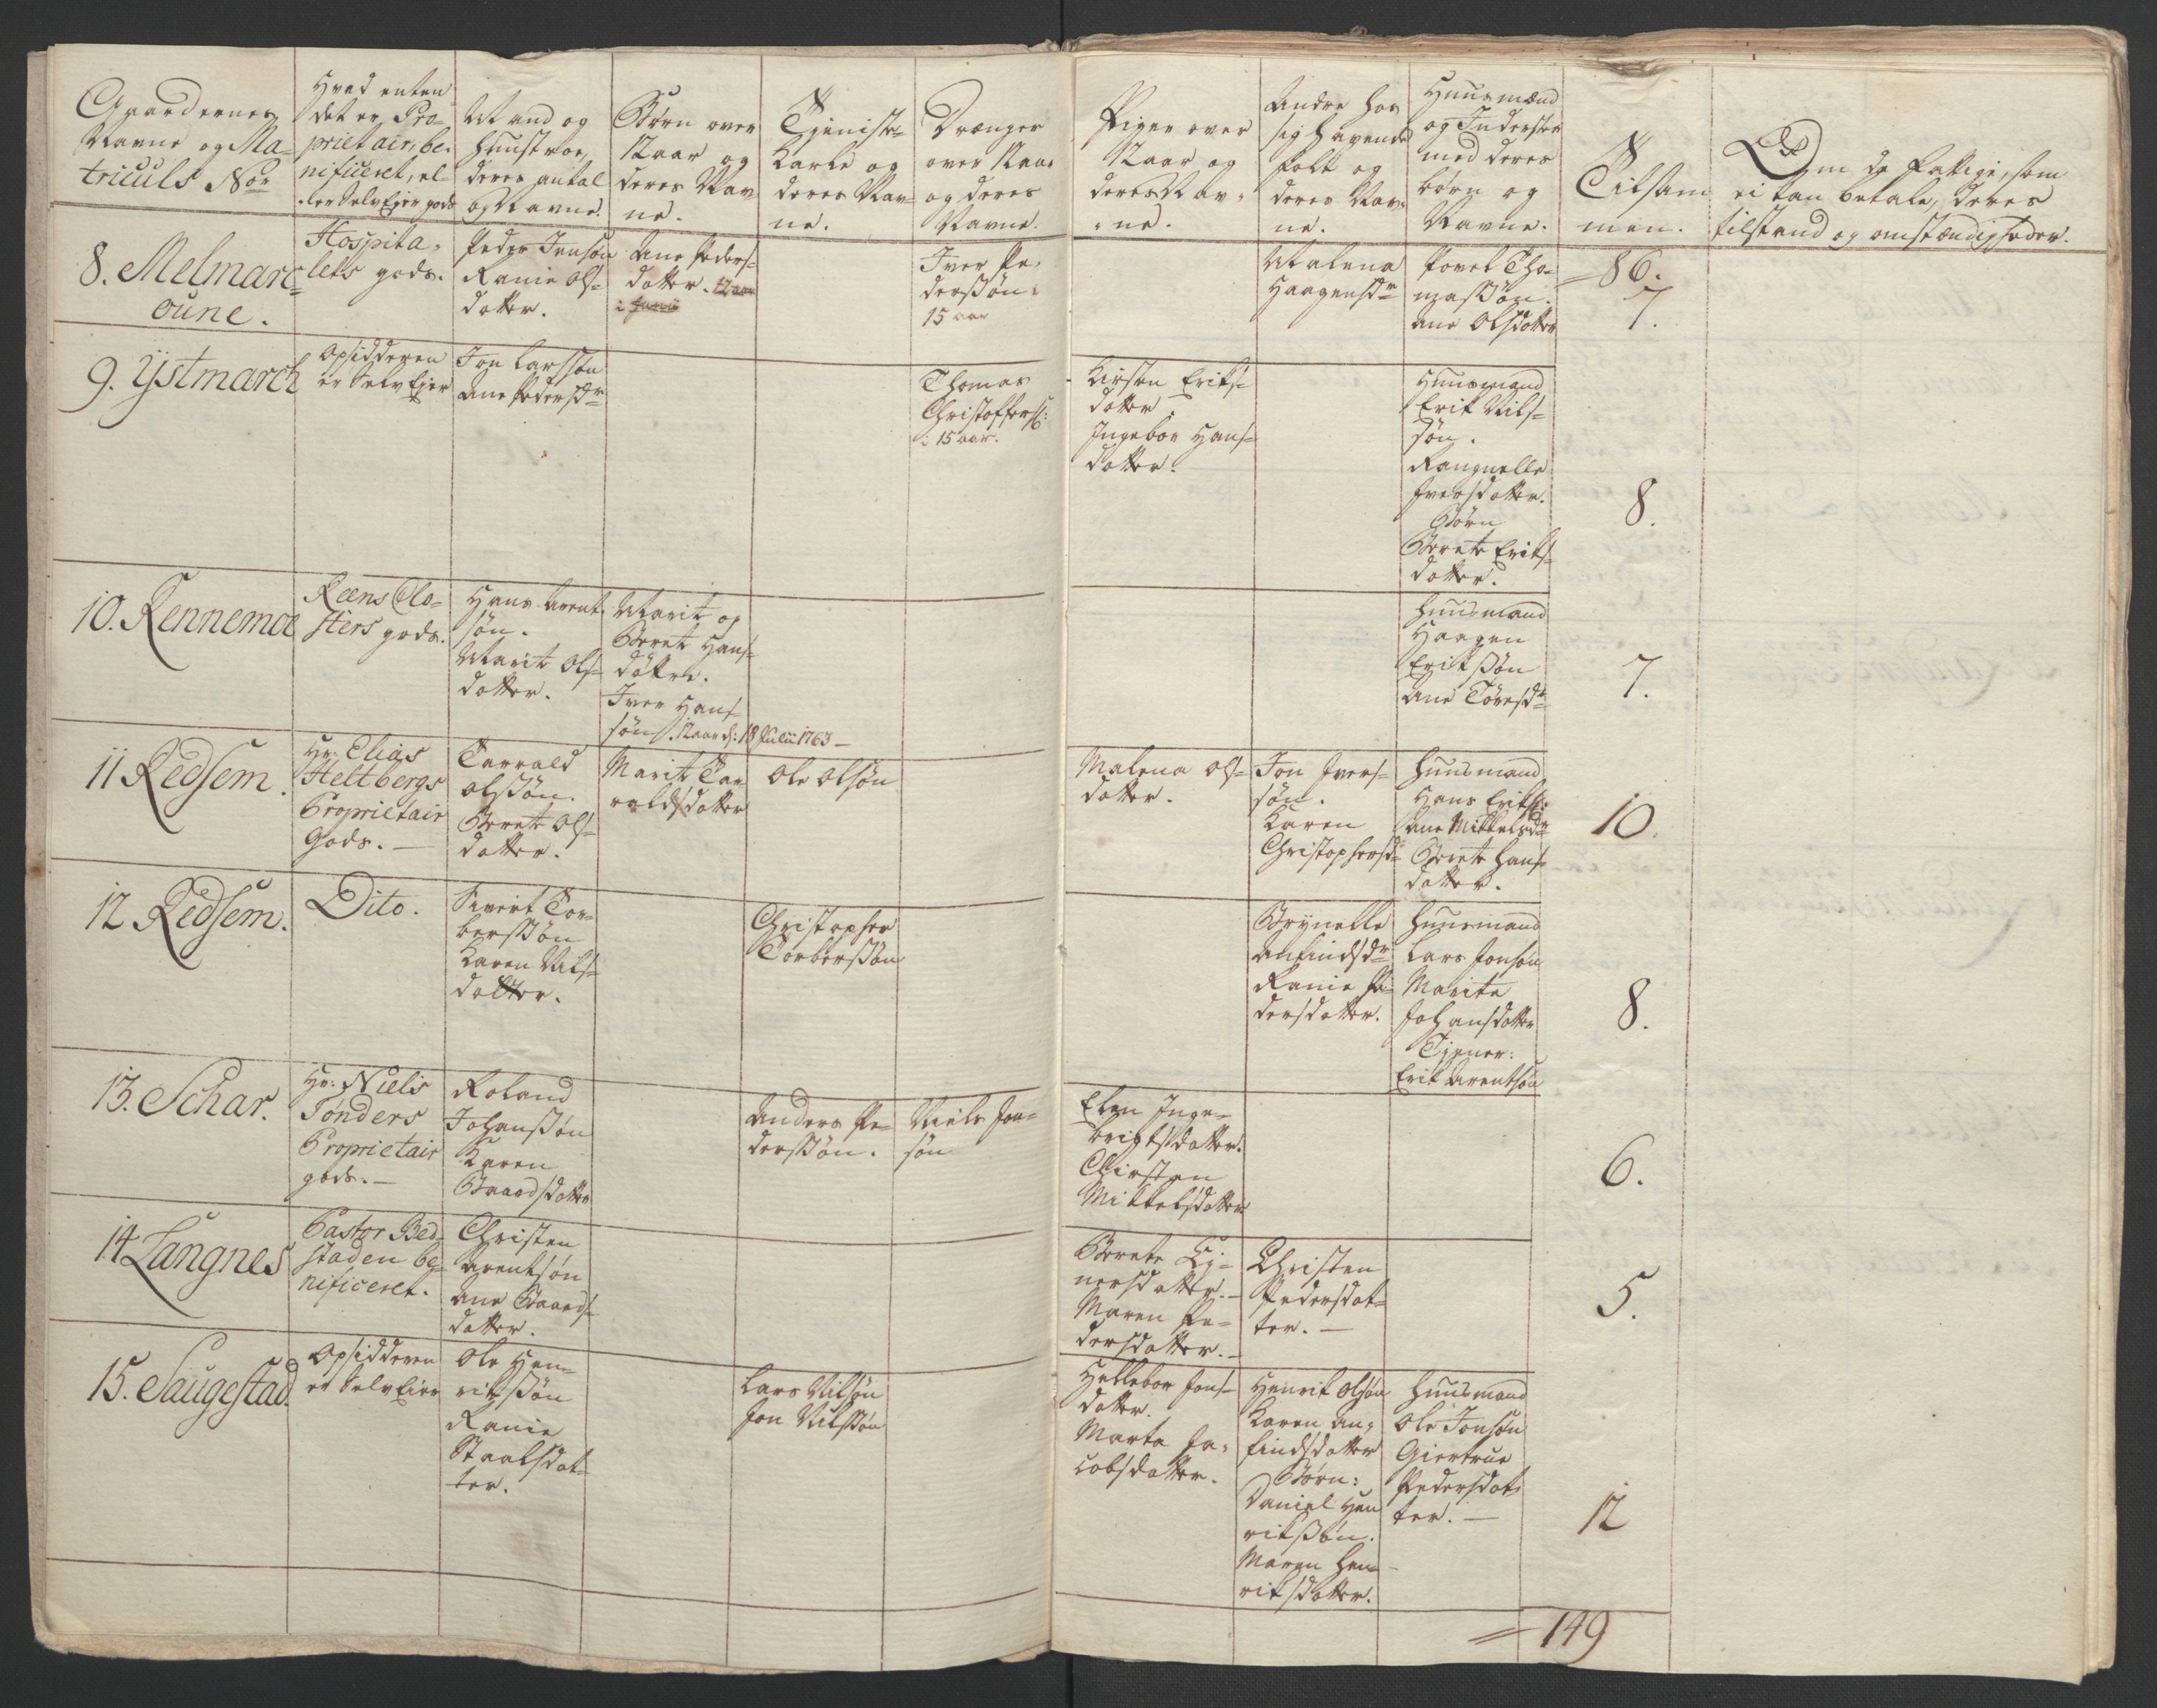 Gaardernes
Navne og Ma-
triculs Nor
Hvad enten
det er Pro-
prietair, be-
nificeret, el-
ler Selv Ejer gods
Mand og
Hustroe,
deres antal
og Navne.
Børn over
12 aar og
deres Nav-
ne.
Tjeniste-
Karle og
deres Nav-
ne.
Drænger
over 12 aar
og deres
Navne.
Piger over
12 aar og
deres Nav-
ne.
Andre hos
sig havende
folk og
deres Nav-
ne.
Huusmænd
og Inderster
med deres
børn og
Navne.
Tilsam
men.
Om de fattige, som
ei kan betale, deres
tilstand og omstændigheder.
8. Melmarc-
oune.
Hospita-
lets gods.
Peder Jensøn
Ranie Ols-
datter.
Ane Peders-
datter. 12 aar
i Junii
Iver Pe-
dersøn
15 aar
Malena
Haagensdr
Povel Tho-
massøn.
Ane Olsdatter
= 86.
7.
9. Ystmarck
Opsidderen
er Selv Ejer
Jon Larssøn
Ane Pedersdr
Thomas
Christoffers:
: 15 aar.
Kirsten Eriks-
datter
Ingebor Hans-
datter.
Huusmand
Erik Nils-
søn.
Rangnelle
Iversdatter.
Børn
Berete Eriks-
datter.
8.
10. Rennemoe
Reens Clo-
sters gods.
Hans Arent-
søn.
Marit Ols-
datter.
Marit og
Beret Hans-
døttre.
Iver Hans-
søn. 12 aar d: 18 Julii 1763 —
Huusmand
Haagen
Erikssøn
Ane Toresdr
7.
11 Redsem.
Hr: Elias
Heltbergs
Proprietair
Gods. —
Tarrald
Olssøn.
Berete Ols-
datter.
Marit Tar
raldsdatter
Ole Olsøn
Malena Ols-
datter.
Jon Ivers-
søn.
Karen
Christophersdr
Huusmand
Hans Eriks:
Ane Mikkelsdr
Berete Hans-
datter.
10.
12 Redsem.
Dito.
Sivert Tor-
berssøn
Karen Nils-
datter.
Christopher
Torberssøn
Brynelle
Anfindsdr
Ranie Pe-
dersdatter.
Huusmand
Lars Jonsøn
Marite
Johansdatter
Tjener:
Erik Arentsøn
8.
13. Schar.
Hr: Niels
Tønders
Proprietair
gods. —
Roland
Johanssøn
Karen
Baardsdatter
Anders Pe-
derssøn.
Niels Jon-
søn
Elen Inge-
brigtsdatter.
Chirsten
Mikkelsdatter
6.
14 Langnes
Pastor Bed-
staden be-
nificeret.
Christen
Arentsøn
Ane Baards-
datter.
Berete Ej-
nersdatter. —
Maren Pe-
dersdatter. —
Christen
Pedersdat-
ter. —
5.
15. Saugestad.
Opsidderen
er Selv Eier
Ole Hen-
rikssøn
Ranie
Staalsdat-
ter.
Lars Nilsøn
Jon Nilssøn
Hellebor Jons-
datter.
Marta Ja-
cobsdatter.
Henrik Olsøn
Karen An-
findsdatter
Børn:
Daniel Hen
rikssøn.
Maren Hen-
riksdatter.
Huusmand
Ole Jonsøn
Giertrue
Pedersdat-
ter. —
12
= 149